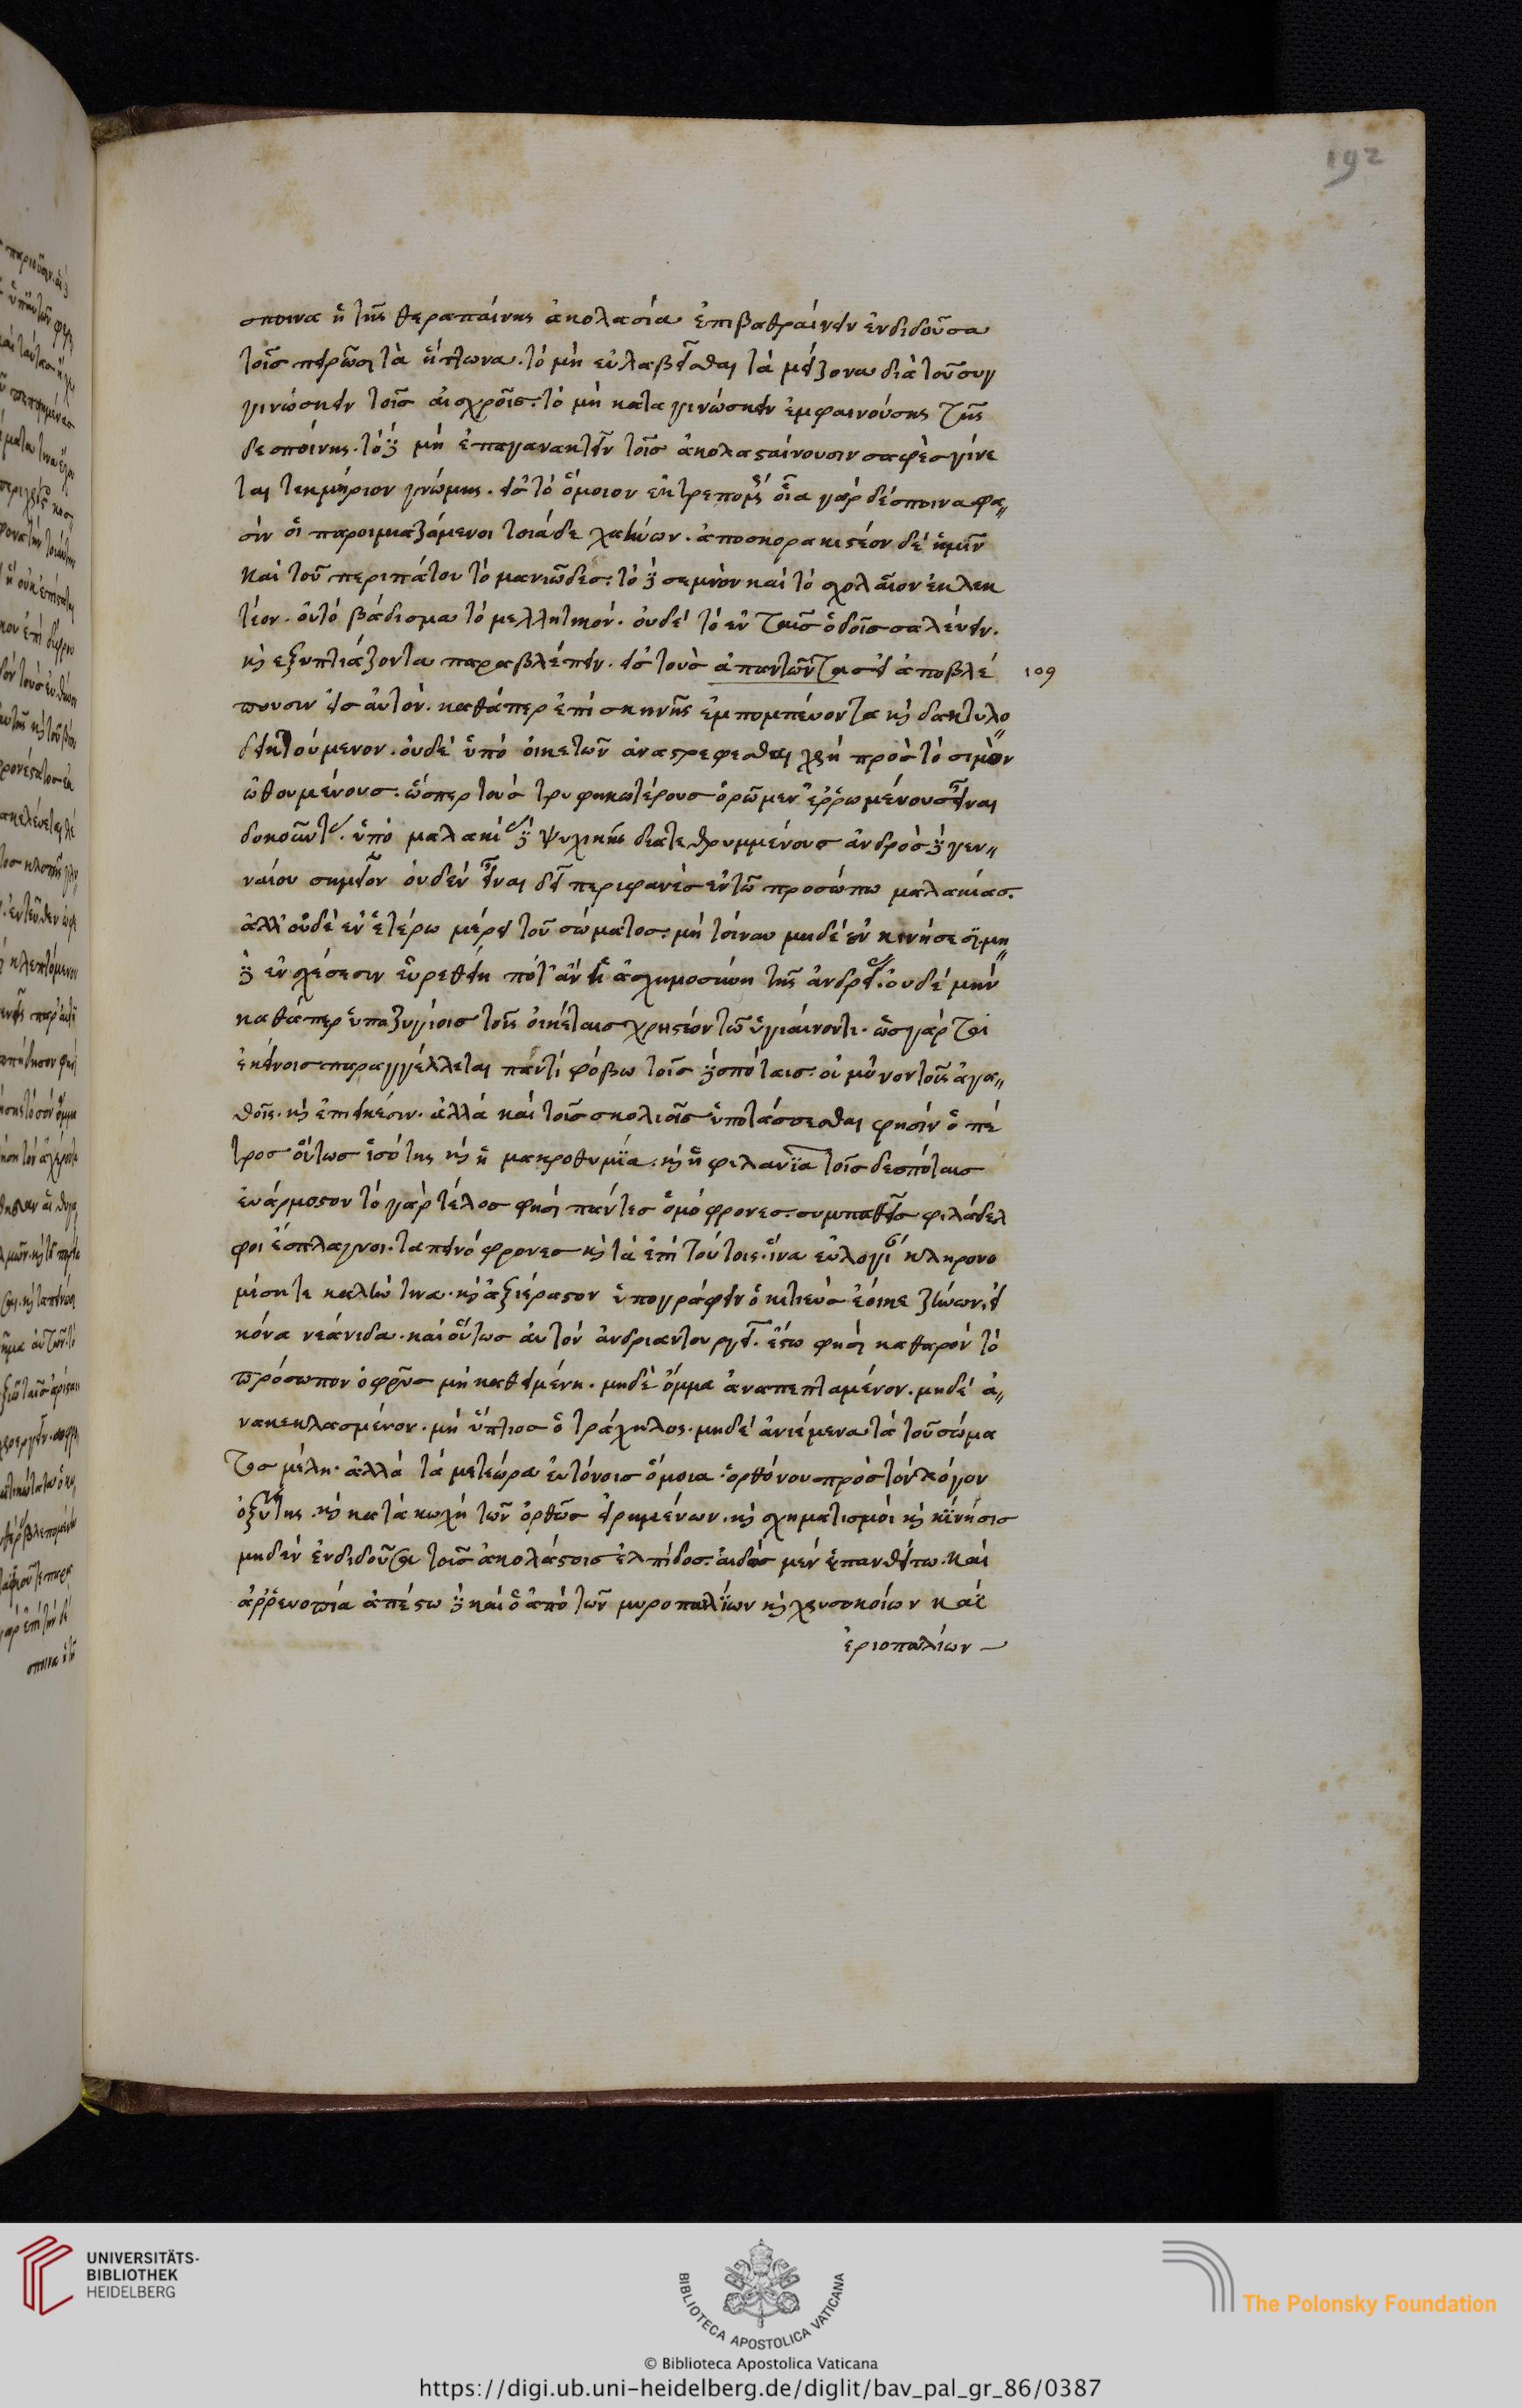 192
σποινα ἢ τῆς θεραπαίνης ἀκολασία ἐπιβαθραίνειν ἐνδιδοῦσα
τοῖς πειρῶσι τὰ ἥττωνα. τὸ μὴ εὐλαβεῖσθαι τὰ μείζονα διὰ τοῦ συγ
γινώσκειν τοῖς αἰσχροῖς. τὸ μὴ καταγινώσκειν ἐμφαινούσης τῆς
δεσποίνης. τὸ δὲ μὴ ἐπαγανακτεῖν τοῖς ἀκολασταίνουσιν σαφὲς γίνε
ται τεκμήριον γνώμης. εἰς τὸ ὅμοιον ἐκτρεπομένης οἵα γὰρ δέσποινα φα
σὶν οἱ παροιμιαζόμενοι τοιάδε χἁ κύων. ἀποσκορακιστέον δὲ ἡμῖν
καὶ τοῦ περιπάτου τὸ μανιῶδες. τὸ δὲ σεμνὸν καὶ τὸ σχολαῖον ἐκλεκ
τέον. οὐ τὸ βάδισμα τὸ μελλητικόν. οὐδὲ τὸ ἐν ταῖς ὁδοῖς σαλεύειν.
κὶ ἐξυπτιάζοντα παραβλέπειν. εἰς τοὺς ἀπαντῶντας εἰ ἀποβλέ 109
πουσιν εἰς αὐτόν. καθάπερ ἐπὶ σκηνῆς ἐμπομπεύοντα κὶ δακτυλο
δεικτούμενον. οὐδὲ ὑπὸ οἰκετῶν ἀναστρέφεσθαι χρὴ πρὸς τὸ σιμὸν
ὠθουμένους. ὥσπερ τοὺς τρυφικωτέρους ὁρῶμεν ἐῤῥωμένους εἶναι
δοκοῦντας. ὑπὸ μαλακίας δὲ ψυχικῆς διατεθρυμμένους ἀνδρὸς δὲ γεν
ναίου σημεῖον οὐδὲν εἶναι δεῖ περιφανὲς ἐν τῶ προσώπω μαλακίας.
ἀλλ' οὐδὲ ἐν ἑτέρω μέρει τοῦ σώματος. μὴ τοίνυν μηδὲ ἐν κινήσεσι μη
δὲ ἐν σχέσεσιν εὑρεθείη πότ' ἂν ἡ ἀσχημοσύνη τῆς ἀνδρείας. οὐδὲ μὴν
καθάπερ ὑποζυγίοις τοῖς οἰκέταις χρηστέον τῶ ὑγιαίνοντι. ὡς γὰρ
ἐκείνοις παραγγέλλεται παντὶ φόβω τοῖς δεσπόταις. οὐ μόνον τοῖς ἀγα
θοῖς. κὶ ἐπιεικέσιν. ἀλλὰ καὶ τοῖς σκολιοῖς ὑποτάσσεσθαι φησὶν ὁ πέ
τρος οὕτως ἰσότης κὶ ἡ μακροθυμία. κὶ ἡ φιλανία τοῖς δεσπόταις
εὐάρμοστον τὸ γὰρ τέλος φησὶ πάντες ὁμόφρονες. συμπαθεῖς φιλάδελ
φοι εὔσπλαγχνοι. ταπεινόφρονες κὶ τὰ ἐπὶ τούτοις. ἵνα εὐλογίαν κληρονο
μήσητε καλήν τινα. κὶ ἀξιέραστον ὑπογράφειν ὁ κιτιεὺς ἔοικε ζήνων. εἰ
κόνα νεάνιδα. καὶ οὕτως αὐτὸν ἀνδριαντουργεῖ. ἔστω φησὶ καθαρὸν τὸ
πρόσωπον ὀφρῦς μὴ καθειμένη. μηδὲ ὄμμα ἀναπεπταμένον. μηδὲ ἀ
νακεκλασμένον. μὴ ὕπτιος ὁ τράχηλος. μηδὲ ἀνιέμενα τὰ τοῦ σώμα
τος μέλη. ἀλλὰ τὰ μετέωρα ἐντόνοις ὅμοια. ὀρθόνου πρὸς τὸν λόγον
ὀξύτης. κὶ κατὰ κωχὴ τῶν ὀρθῶς εἰρημένων. κὶ σχηματισμοὶ κὶ κίνησις
μηδὲν ἐνδιδοῦσαι τοῖς ἀκολάστοις ἐλπίδος. αἰδὼς μὲν ἐπανθείτω. καὶ
ἀῤῥενωπία ἀπέστω δὲ καὶ ὁ ἀπὸ τῶν μυροπωλίων κὶ χρυσοκοίων καὶ
ἐριοπωλίων
UNIVERSITÄTS-
BIBLIOTHEK
HEIDELBERG
BIBLIOTECA APOSTOLICA VATICANA
The Polonsky Foundation
© Biblioteca Apostolica Vaticana
https://digi.ub.uni-heidelberg.de/diglit/bav_pal_gr_86/0387